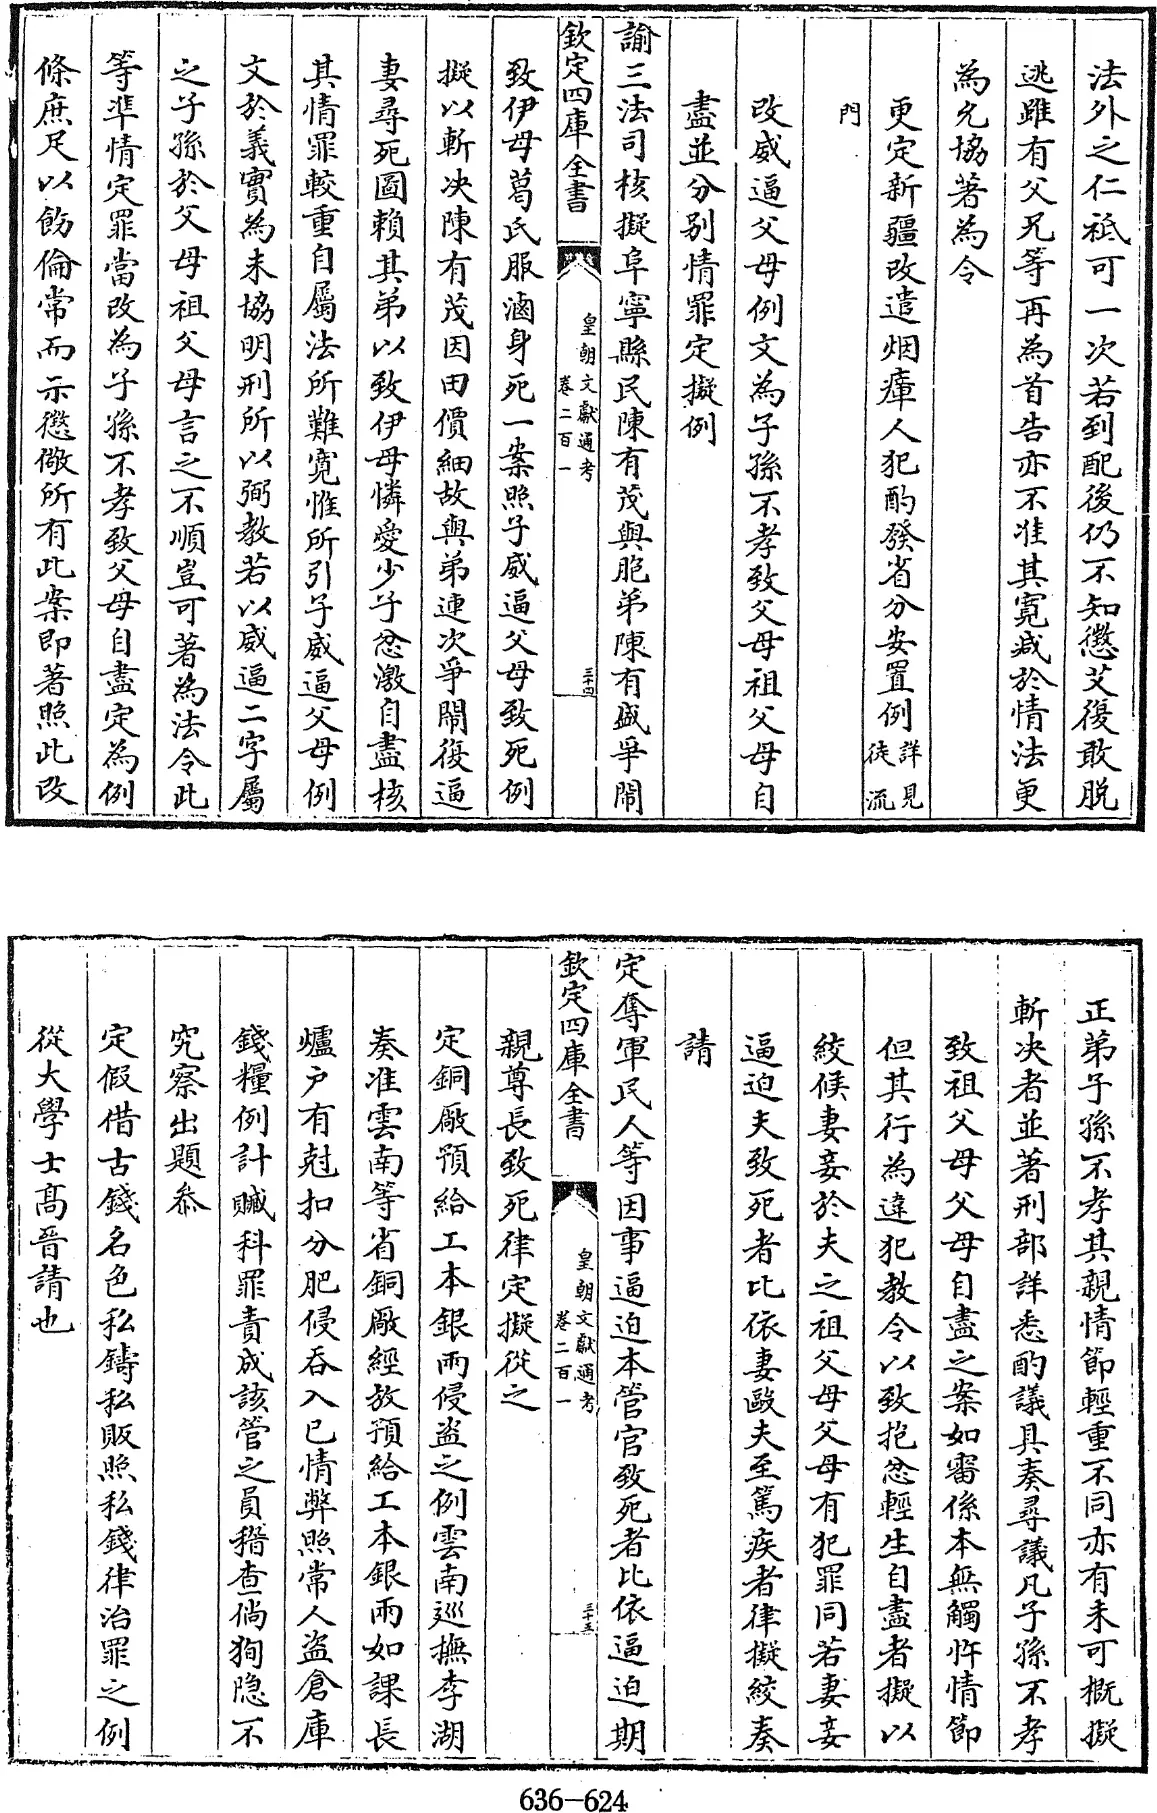 法外之仁祗可一次若到配後仍不知懲艾復敢脱
逃雖有父兄等再為首告亦不准其寛减於情法更
為允協著為令
更定新疆改遣烟瘴人犯酌發省分安置例詳見徒流
門
改威逼父母例文為子孫不孝致父母祖父母自
盡並分别情罪定擬例
諭三法司核擬阜寧縣民陳有茂與胞弟陳有盛爭鬧
欽定四庫全書 皇朝文獻通考 卷二百一 三十四
致伊母葛氏服滷身死一案照子威逼父母致死例
擬以斬决陳有茂因田價細故與弟連次爭鬧復逼
妻尋死圖賴其弟以致伊母憐愛少子忿激自盡核
其情罪較重自屬法所難寛惟所引子威逼父母例
文於義實為未協明刑所以弼教若以威逼二字屬
之子孫於父母祖父母言之不順豈可著為法令此
等準情定罪當改為子孫不孝致父母自盡定為例
條庶足以飭倫常而示懲儆所有此案即著照此改
正弟子孫不孝其親情節輕重不同亦有未可概擬
斬决者並著刑部詳悉酌議具奏尋議凡子孫不孝
致祖父母父母自盡之案如審係本無觸忤情節
但其行為違犯教令以致抱忿輕生自盡者擬以
絞候妻妾於夫之祖父母父母有犯罪同若妻妾
逼迫夫致死者比依妻毆夫至篤疾者律擬絞奏
請
定奪軍民人等因事逼迫本管官致死者比依逼迫期
欽定四庫全書 皇朝文獻通考 卷二百一 三十五
親尊長致死律定擬從之
定銅廠預給工本銀兩侵盗之例雲南巡撫李湖
奏准雲南等省銅厰經放預給工本銀兩如課長
爐户有尅扣分肥侵吞入已情弊照常人盗倉庫
錢糧例計贓科罪責成該管之員稽查倘狥隱不
究察出題叅
定假借古錢名色私鑄私販照私錢律治罪之例
從大學士髙晋請也
636-624